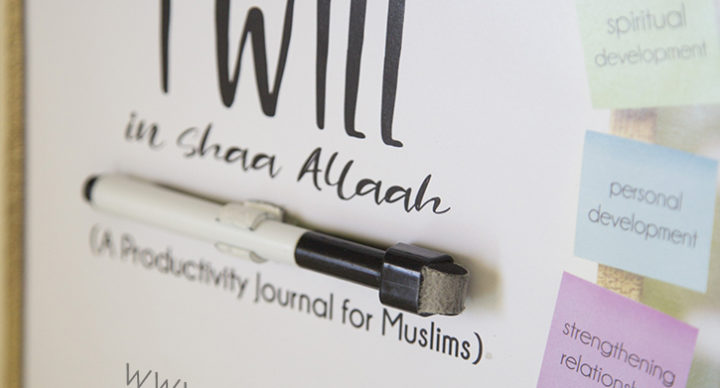 I Will
in shaa Allaah
(A Productivity Journal for Muslims)
WWW
spiritual
development
personal
development
strengthening